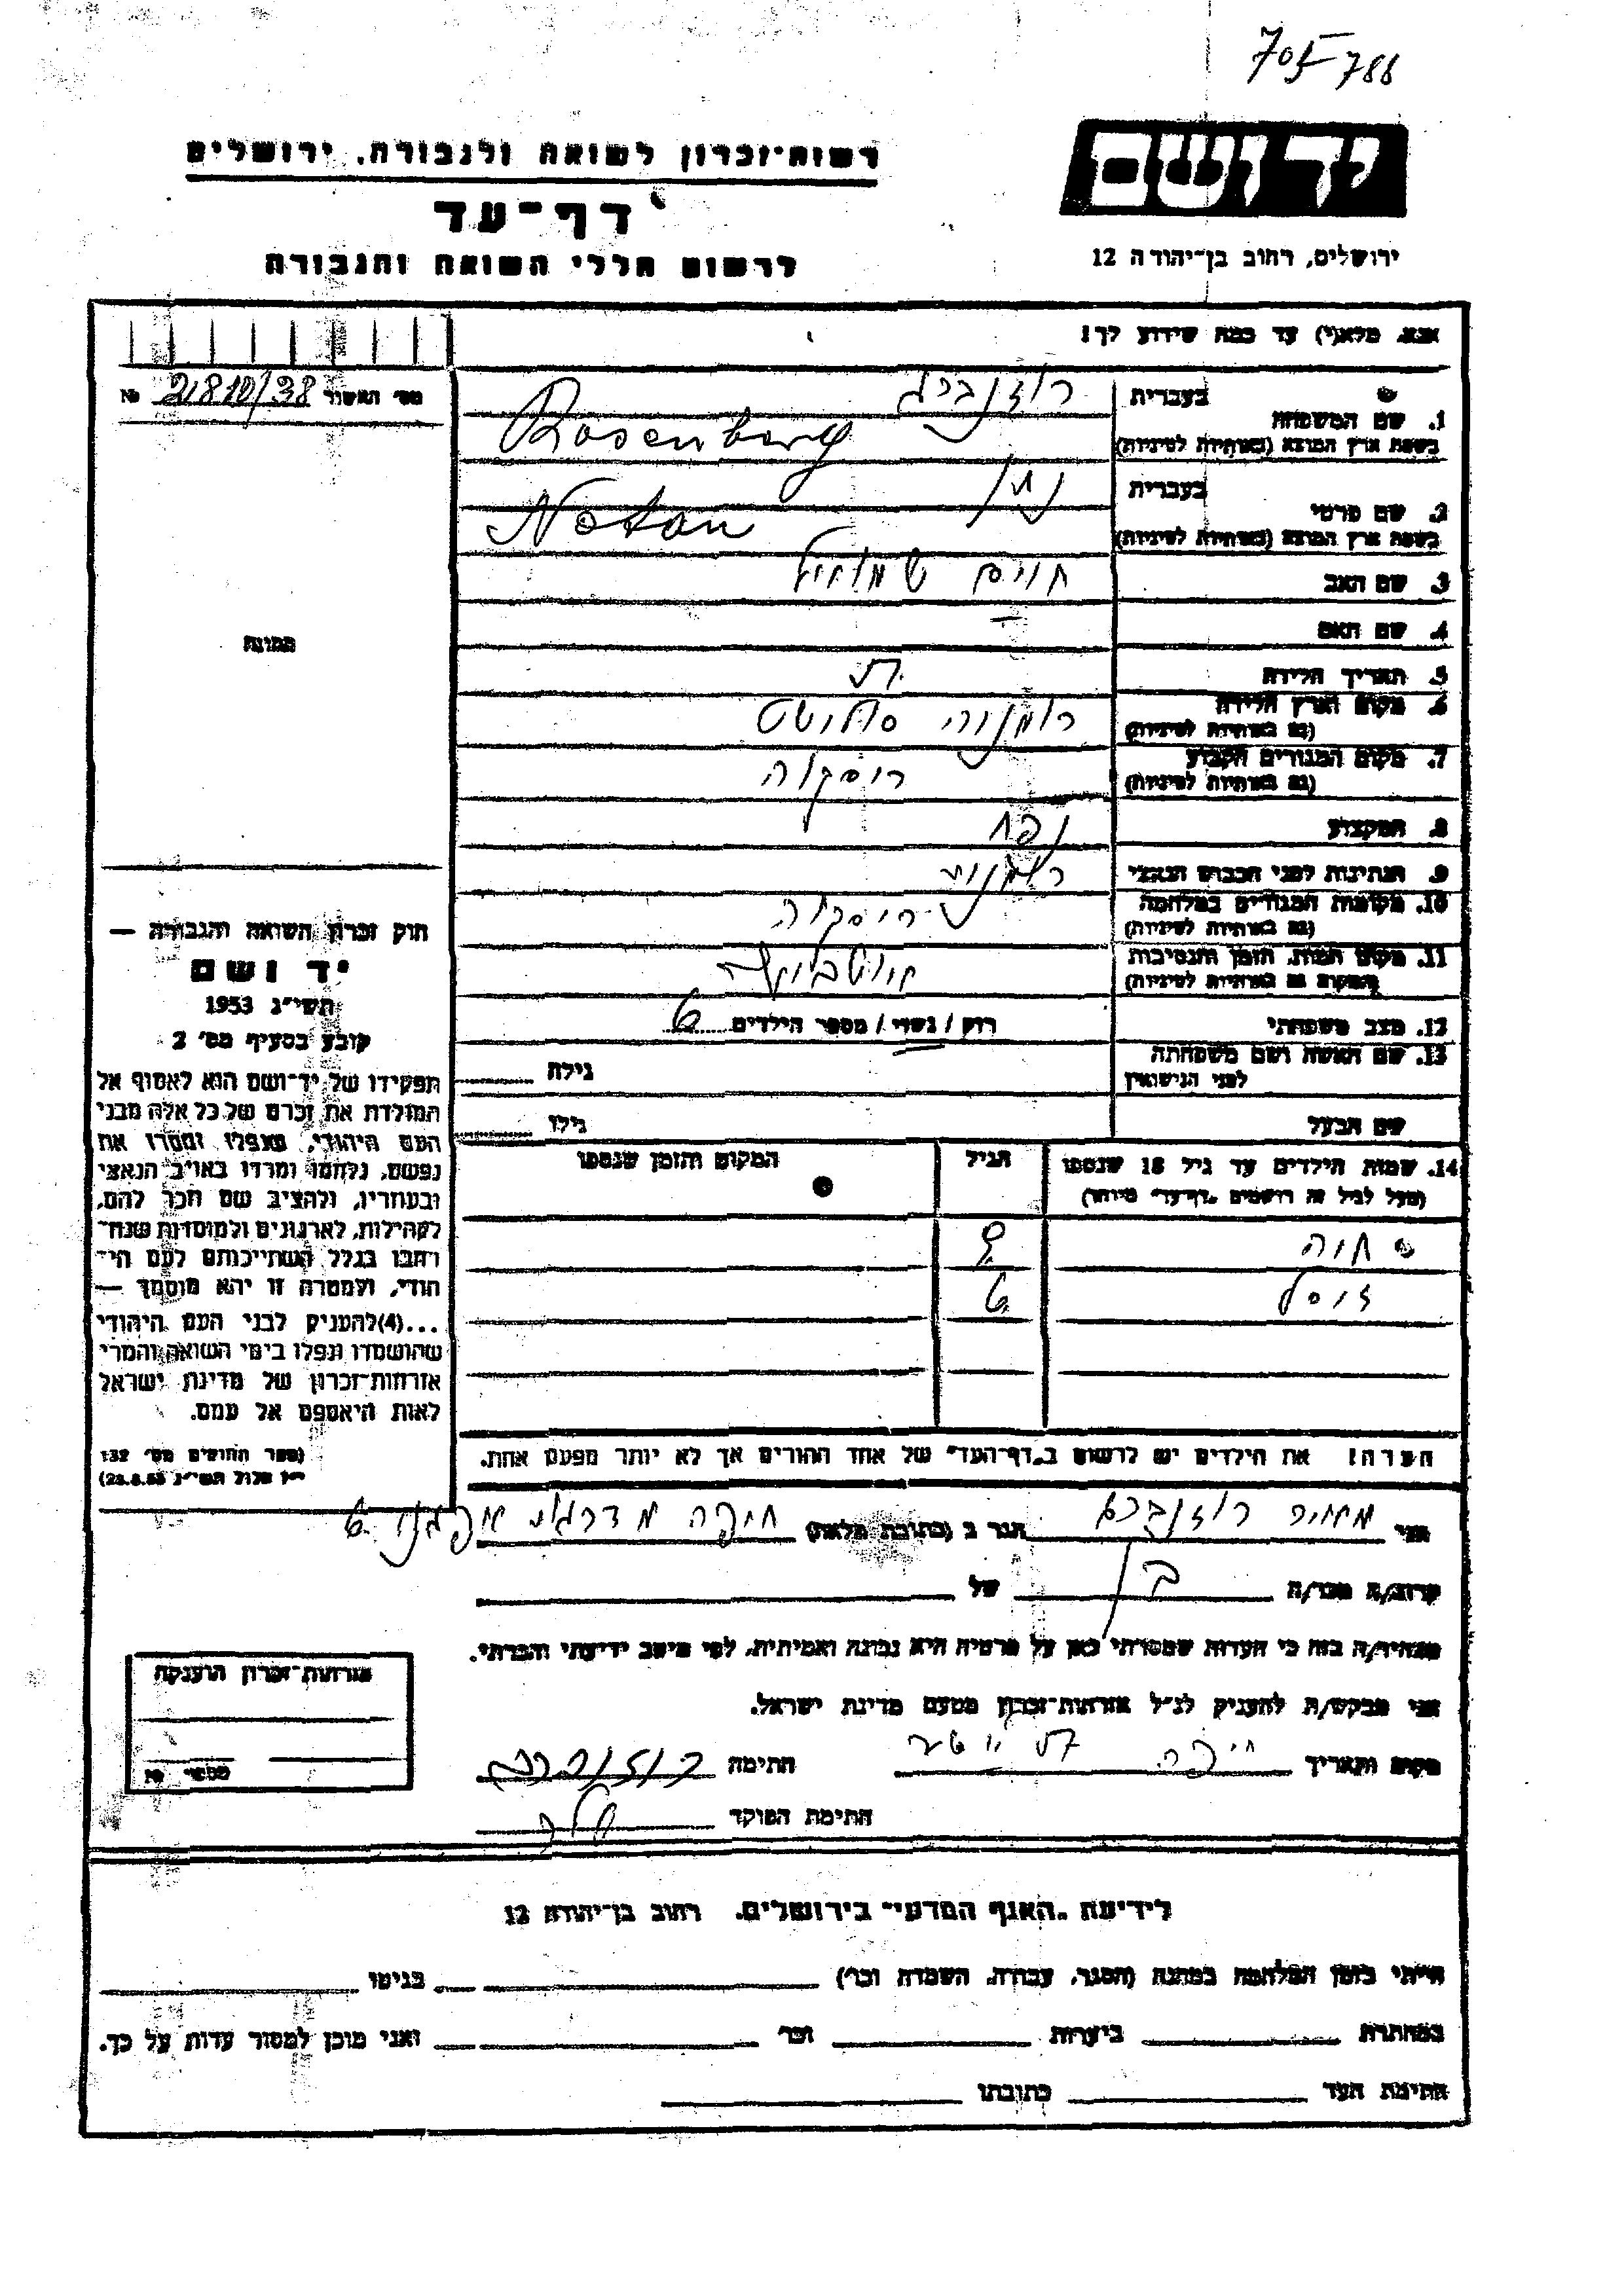 705-788
רשות-זכרון לשואה ולגבורה, ירושלים
יד ושם
דף-עד
ירושלים, רחוב בן-יהודה 12
לרשום חללי השואה והגבורה
אנא, מלא(י) עד כמה שידוע לך!
מס' האשור 21810/38 №
1. שם המשפחה
בעברית רוזנברג
בשפת ארץ המוצא (באותיות לטיניות) Rosenberg
2. שם פרטי
בעברית נתן
בשפת ארץ המוצא (באותיות לטיניות) Notan
3. שם האב חיים שמואל
4. שם האם –
5. תאריך הלידה
6. מקום וארץ הלידה (גם באותיות לטיניות) רומניה
7. מקום המגורים הקבוע (גם באותיות לטיניות) רוסקוה
8. המקצוע נפח
9. הנתינות לפני הכבוש הנאצי רומנית
10. מקומות המגורים במלחמה (גם באותיות לטיניות) רוסקוה
11. מקום המות, הזמן והנסיבות (המקום גם באותיות לטיניות)
12. מצב משפחתי רוק / נשוי / מספר הילדים 6
13. שם האשה ושם משפחתה לפני הנישואין גילה
שם הבעל גילו
14. שמות הילדים עד גיל 18 שנספו הגיל המקום והזמן שנספו
(מעל לגיל זה רושמים "דף-עד" מיוחד)
חוה 9
יוסל 6
הערה! את הילדים יש לרשום ב"דף-העד" של אחד ההורים אך לא יותר מפעם אחת.
התמונה
חוק זכרון השואה והגבורה —
יד ושם
תשי"ג 1953
קובע בסעיף מס' 2
תפקידו של יד-ושם הוא לאסוף אל
המולדת את זכרם של כל אלה מבני
העם היהודי, שנפלו ומסרו את
נפשם, נלחמו ומרדו באויב הנאצי
ובעוזריו, ולהציב שם וזכר להם,
לקהילות, לארגונים ולמוסדות שנח-
רחבו בגלל השתייכותם לעם היה-
חודי, ולמטרה זו יהא מוסמך —
...(4)להעניק לבני העם היהודי
שהושמדו ונפלו בימי השואה והמרי
אזרחות-זכרון של מדינת ישראל
לאות היאספם אל עמם.
(ספר החוקים מס' 132
י"ז אלול תשי"ג 28.8.53)
אני מאיר רוזנברג הגר ב (כתובת מלאה) חיפה
קרוב/ה מכר/ה בן של
מצהיר/ה בזה כי העדות שמסרתי כאן על פרטיה היא נכונה ואמיתית, לפי מיטב ידיעתי והכרתי.
אני מבקש/ת להעניק לנ"ל אזרחות-זכרון מטעם מדינת ישראל.
מקום ותאריך חיפה חתימה רוזנברג
חתימת הפוקד
אזרחות-זכרון הוענקה
מספר №
לידיעת "האגף המדעי" בירושלים, רחוב בן-יהודה 12
הייתי בזמן המלחמה במחנה (הסגר, עבודה, השמדה וכו') בגיטו
במחתרת ביערות וכו' ואני מוכן למסור עדות על כך.
חתימת העד כתובתו